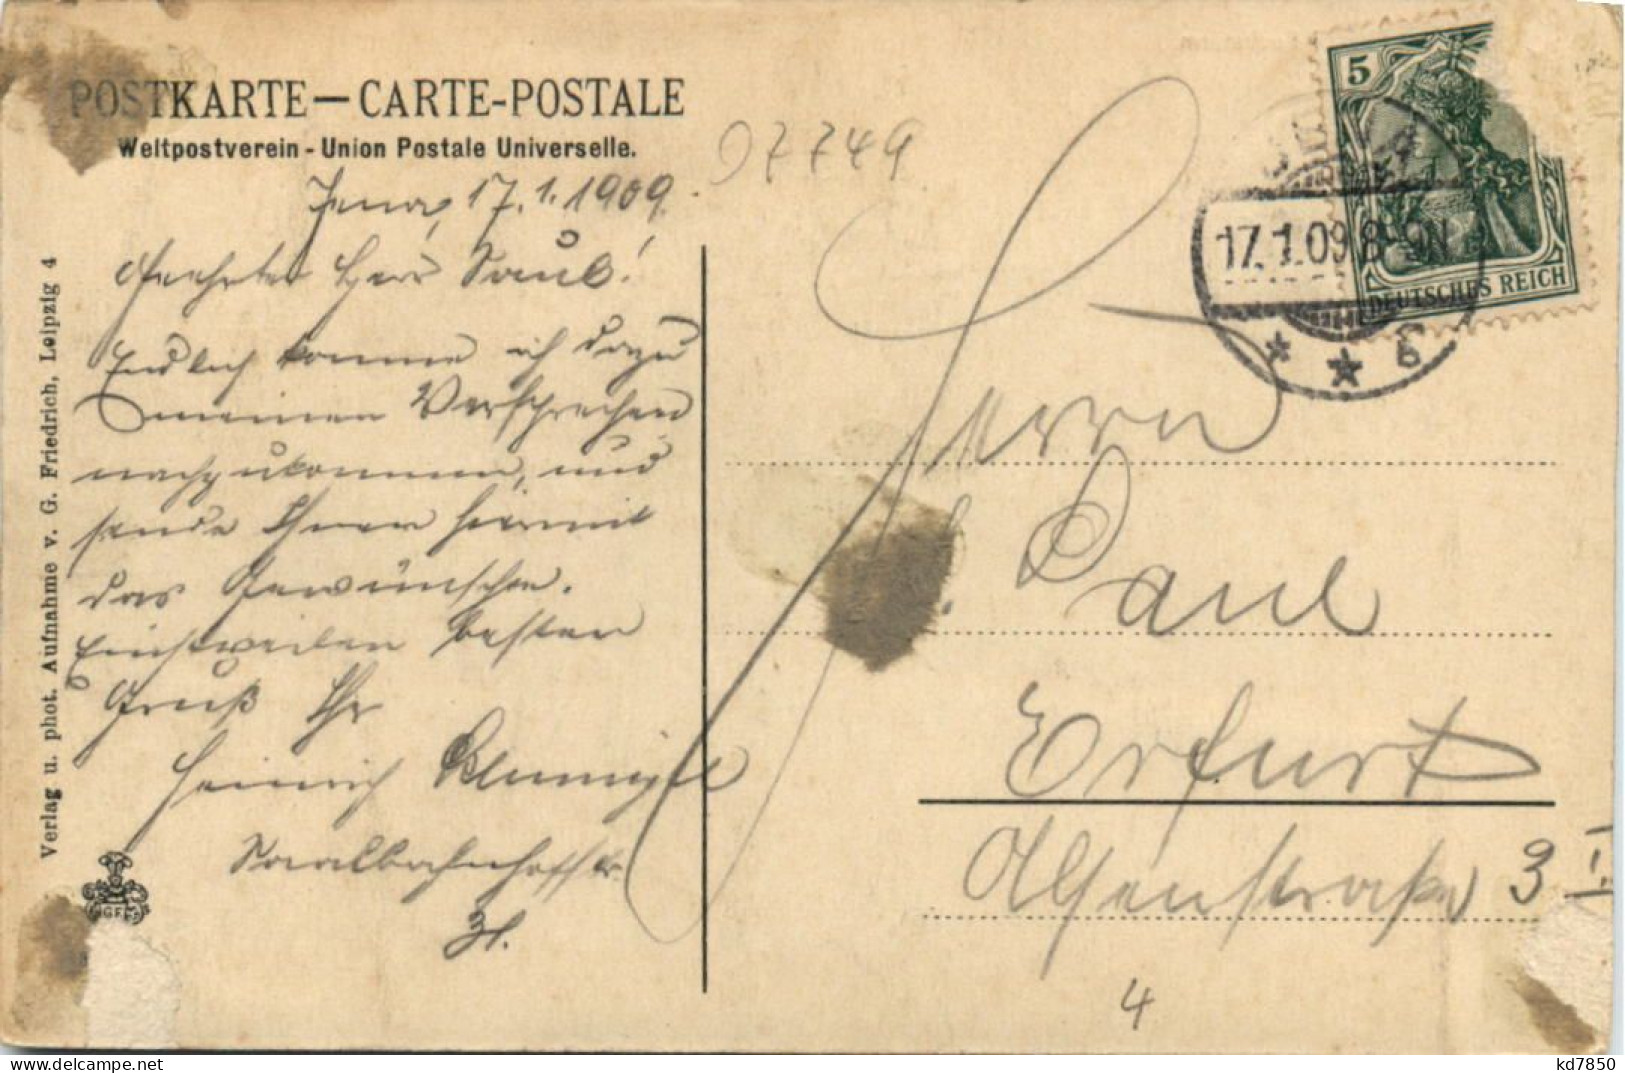 POSTKARTE — CARTE-POSTALE
Weltpostverein - Union Postale Universelle.
07749
Jena, 17.1.1909.
Geehrter Herr Paul!
Endlich komme ich dazu
meinen Versprechen
nachzukommen, und
sende Ihnen hiermit
das Gewünschte.
Einstweilen besten
Gruß Ihr
Heinrich
Saalbahnhofstr.
Verlag u. phot. Aufnahme v. G. Friedrich, Leipzig 4
G.F.L.
5
DEUTSCHES REICH
17.1.09.8-9N
* * c
Herrn
Paul
Erfurt
Alsenstraße 3 I.
4
kd7850